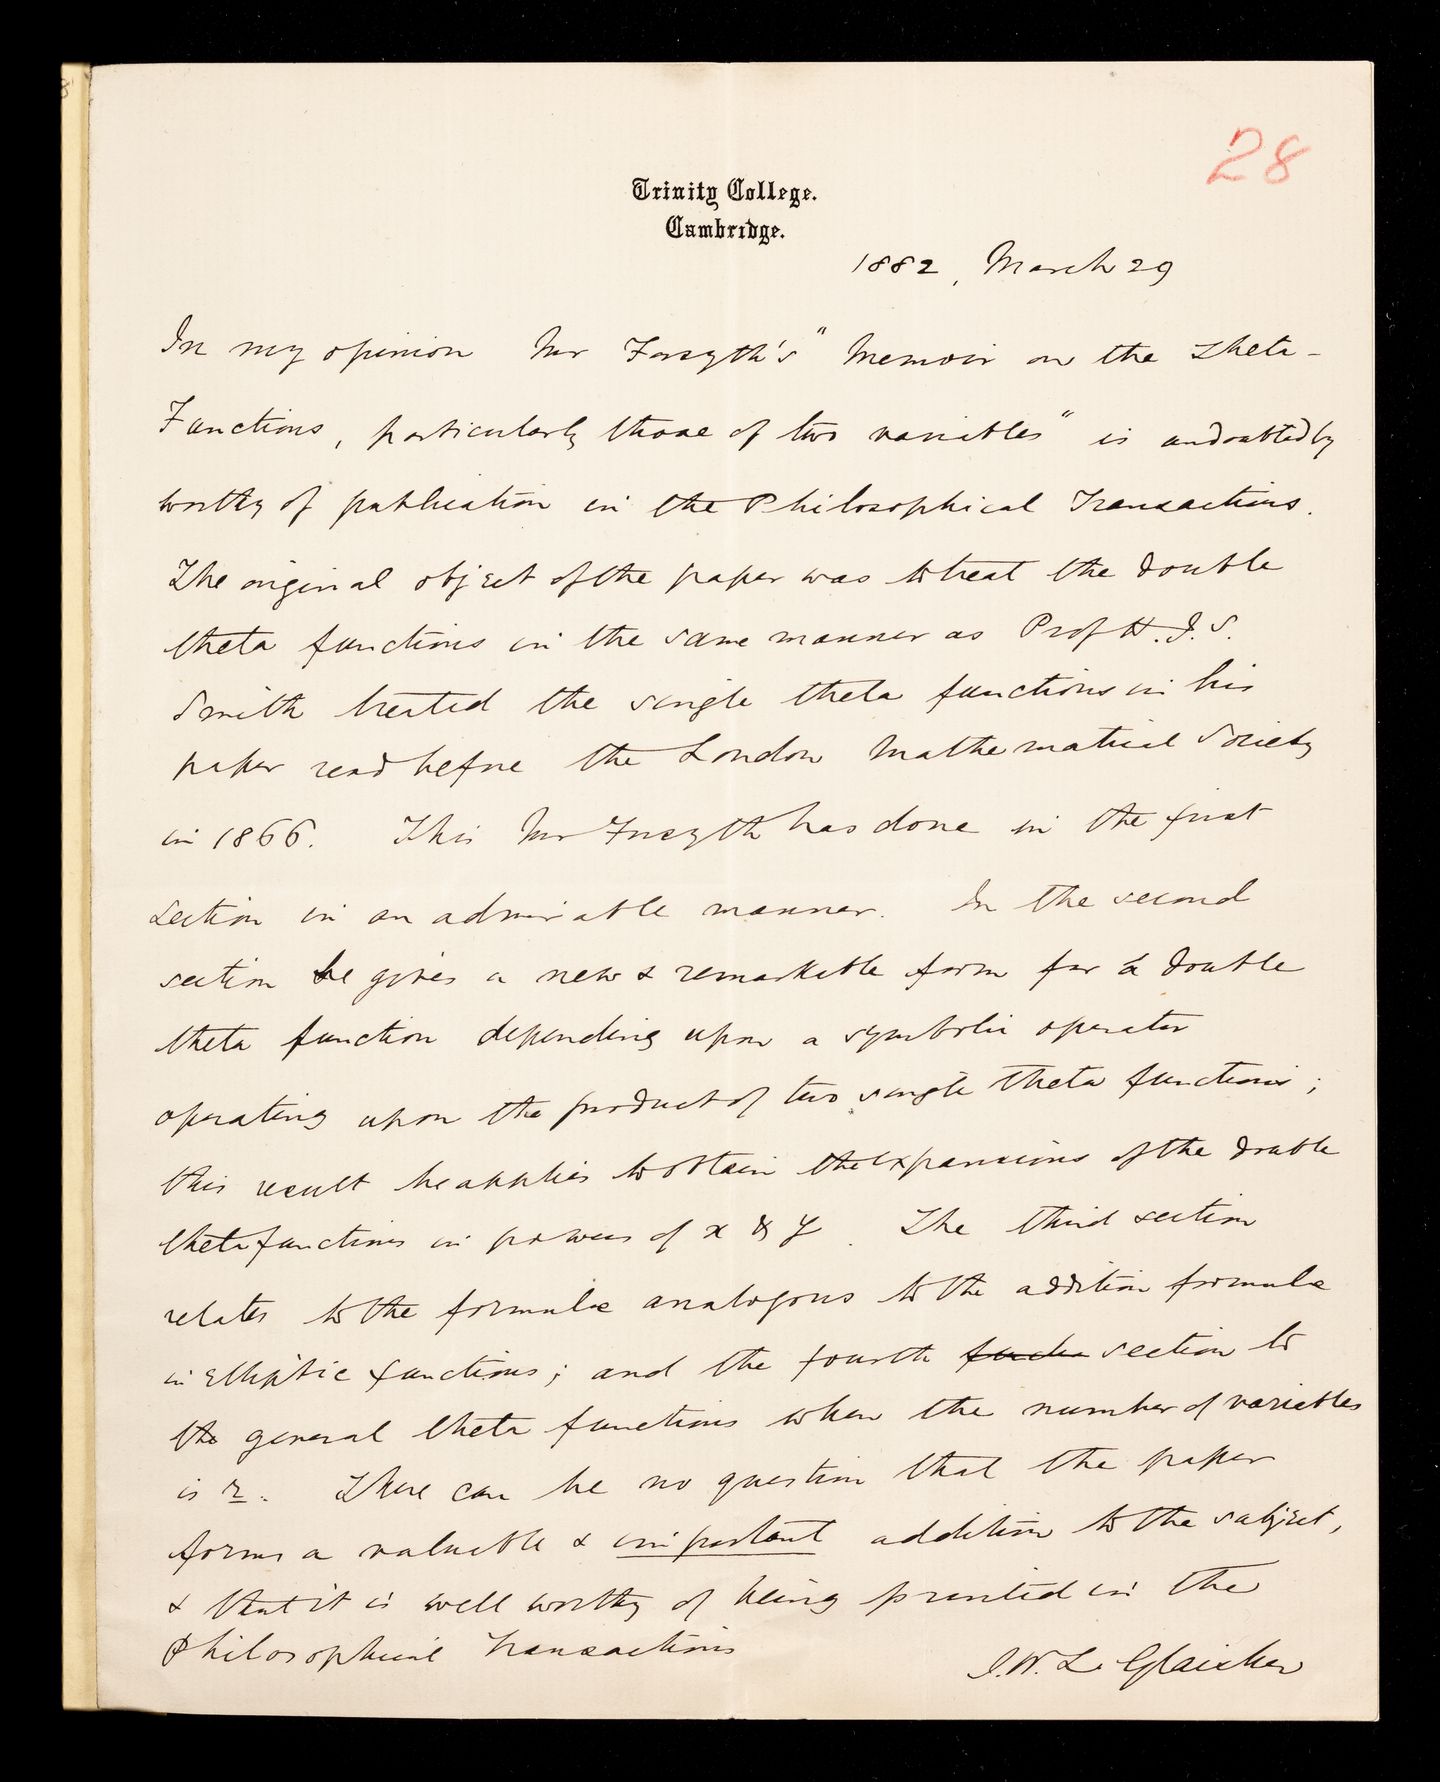 28
Trinity College.
Cambridge.
1882, March 29
In my opinion Mr Forsyth's "Memoir on the Theta-
Functions, particularly those of two variables" is undoubtedly
worthy of publication in the Philosophical Transactions.
The original object of the paper was to treat the double
theta functions in the same manner as Prof H. J. S.
Smith treated the single theta functions in his
paper read before the London Mathematical Society
in 1866. This Mr Forsyth has done in the first
section in an admirable manner. In the second
section he gives a new & remarkable form for a double
theta function depending upon a symbolic operator
operating upon the product of two single theta functions;
this result he applies to obtain the expansions of the double
theta functions in powers of x & y. The third section
relates to the formulæ analogous to the addition formulæ
in elliptic functions; and the fourth section to
the general theta functions when the number of variables
is r. There can be no question that the paper
forms a valuable & important addition to the subject,
& that it is well worthy of being printed in the
Philosophical Transactions
J. W. L. Glaisher